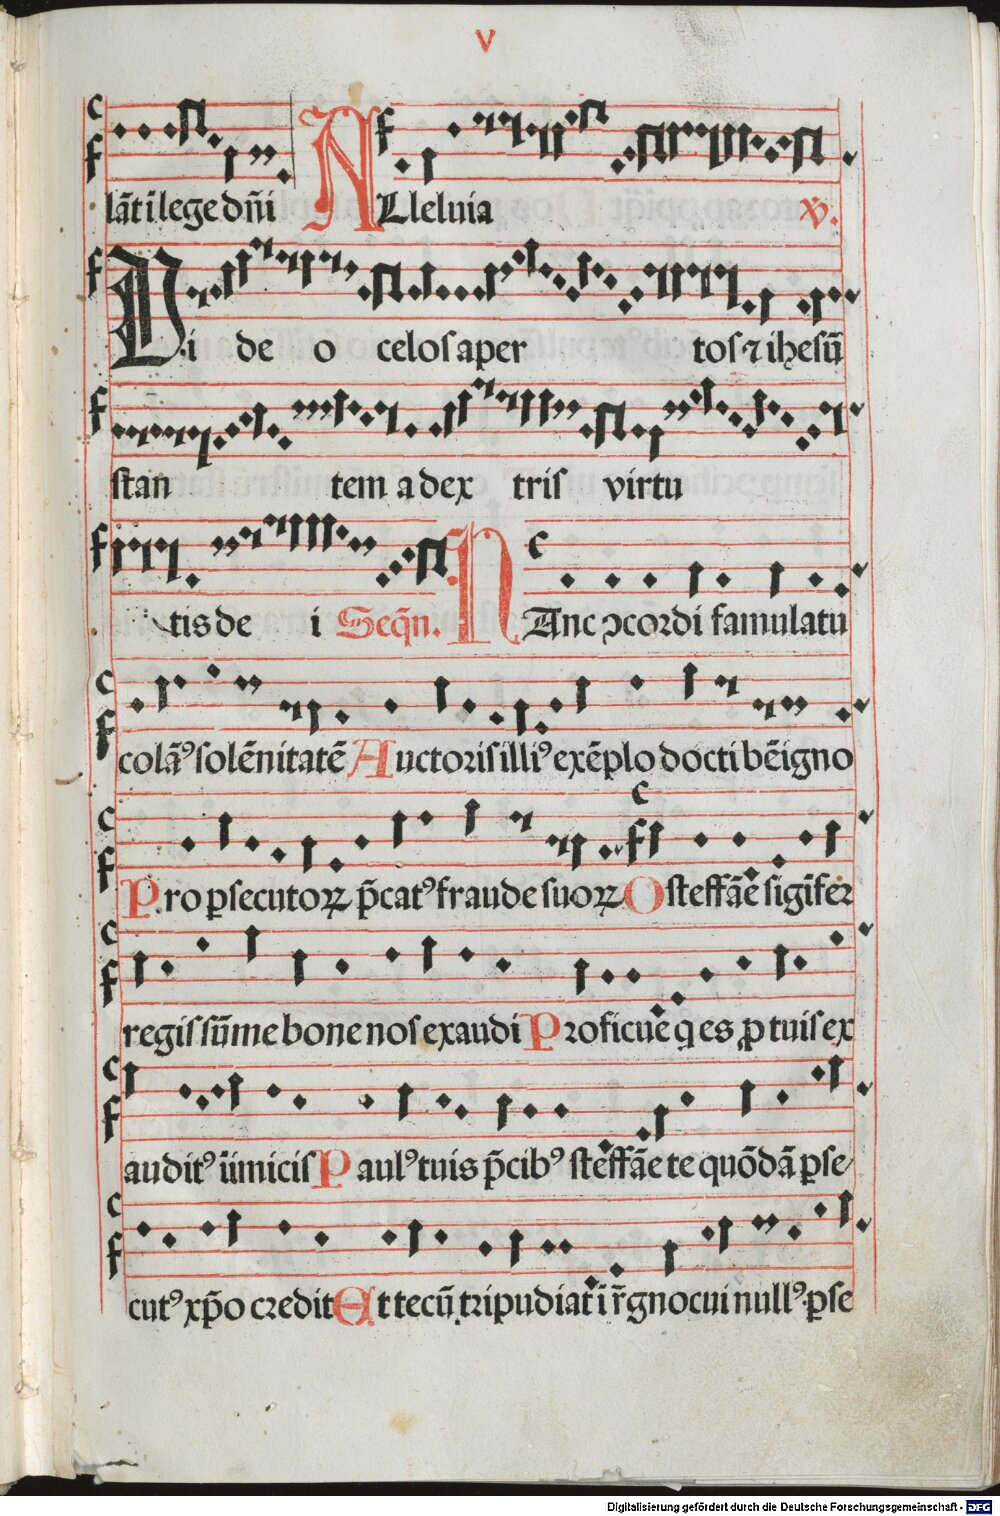 V
lāt ī lege dn̄i ALleluia V̓.
Vi de o celos aper tos ⁊ ihesū
stan tem a dex tris virtu
tis de i Seqn̄. HAnc ꝯcordi famulatu
colāꝰ solēnitatē Auctoris illiꝰ exēplo docti bēigno
Pro ꝑsecutoꝝ p̄catꝰ fraude suoꝝ O steffāe sigīfer
regis sūme bone nos exaudi Proficue q̄ es ꝓ tuis ex
auditꝰ inimicis Paulꝰ tuis p̄cibꝰ steffāe te quōdā ꝑse
cutꝰ xp̄o credit Et tecū tripudiat ī r̄gno cui nullꝰ ꝑse
Digitalisierung gefördert durch die Deutsche Forschungsgemeinschaft - DFG